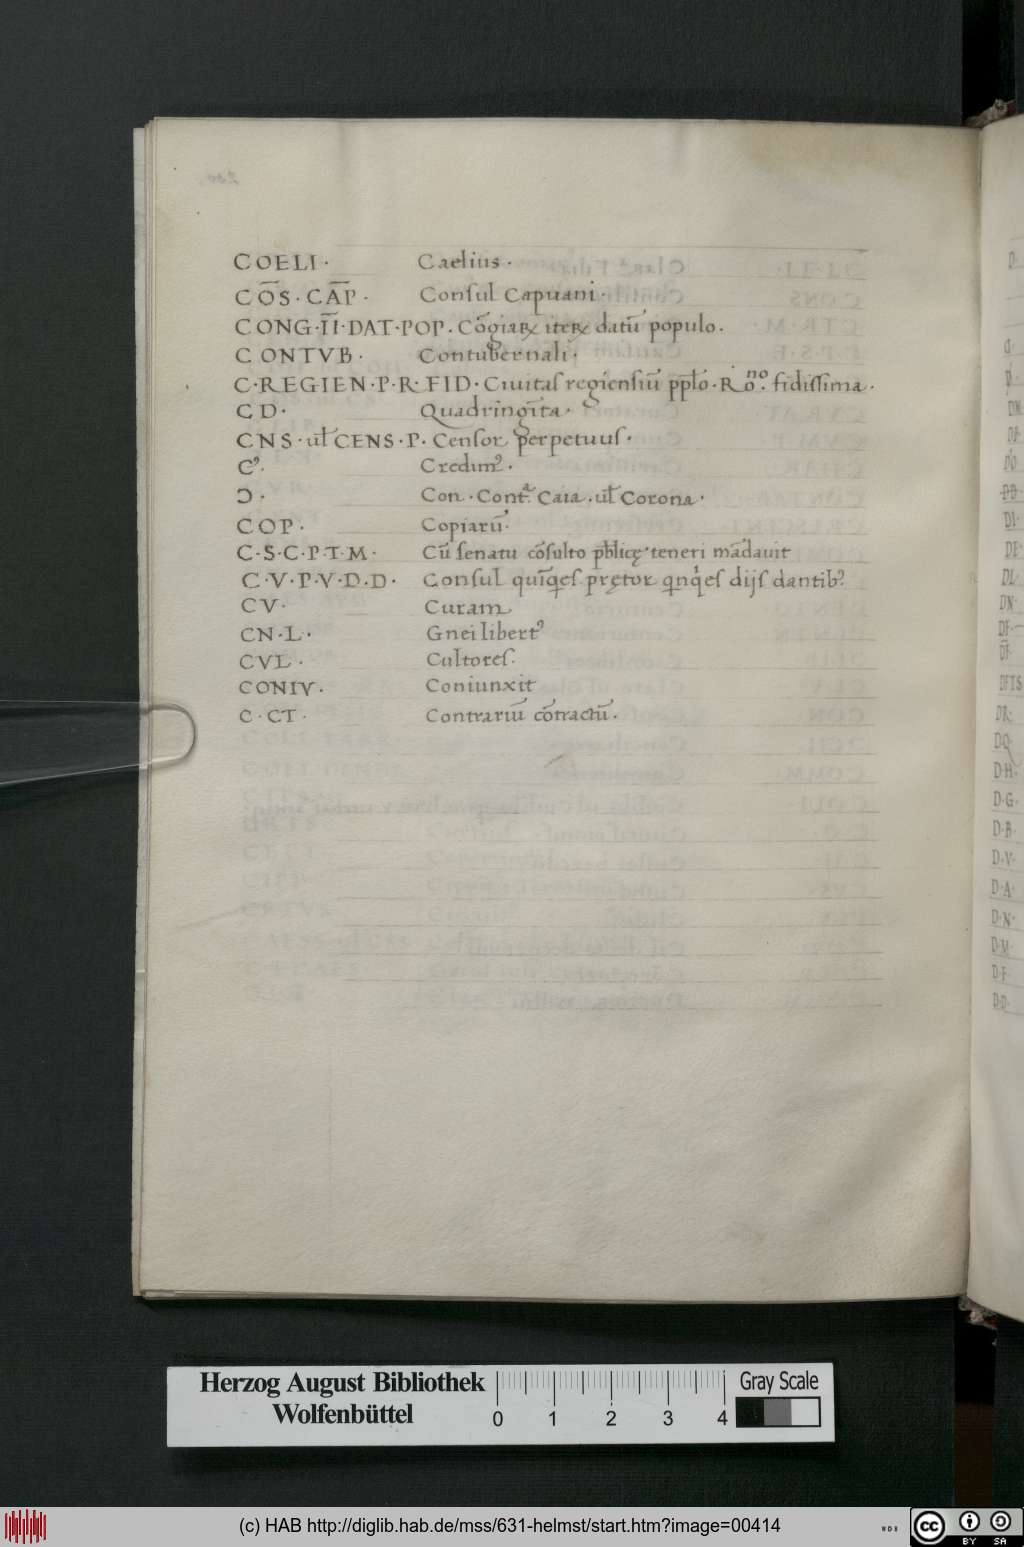 COELI · Caelius ·
CO̅S · CA̅P · Consul Capuani ·
CONG · I̅I̅ · DAT · POP · Co̅giaꝝ iteꝝ datu̅ populo .
CONTVB · Contubernali ·
C · REGIEN · P · R · FID · Ciuitas regie̅siu̅ pp̅lo · Ro.ⁿᵒ fidissima .
C D · Quadringi̅ta ·
CNS · ul̅ CENS · P · Censor perpetuus ·
Cꝰ · Credimꝰ ·
Ɔ · Con · Cont.ᵃ Caia . ul̅ Corona ·
COP · Copiaru̅ ·
C · S · C · P · T · M · Cu̅ senatu co̅sulto pb̅licę teneri ma̅dauit
C · V · P · V · D · D · Consul dijs dantibꝰ
CV · Curam
CN · L · Gnei libertꝰ
CVL · Cultores ·
CONIV · Coniunxit
C · CT · Contrariu̅ co̅tractu̅ ·
D·
DI·
DE·
DL·
DN·
DF·
DFTS
DR·
DQ·
D·H·
D·G·
D·B·
D·V·
D·A·
D·N·
D·M·
D·F·
D·D·
Herzog August Bibliothek
Wolfenbüttel
0 1 2 3 4
Gray Scale
(c) HAB http://diglib.hab.de/mss/631-helmst/start.htm?image=00414
WDB
cc BY SA